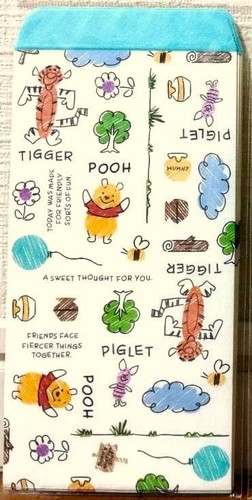 PIGLET
TIGGER
POOH
HUNNY
TODAY WAS MADE
FOR FRIENDLY
SORTS OF FUN.
TIGGER
A SWEET THOUGHT FOR YOU.
FRIENDS FACE
FIERCER THINGS
TOGETHER.
PIGLET
POOH